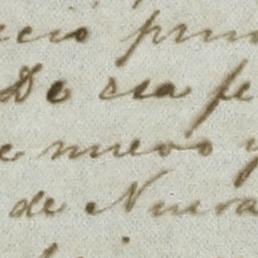 ecio prim
De esa fe
e nuevo y
de Nueva